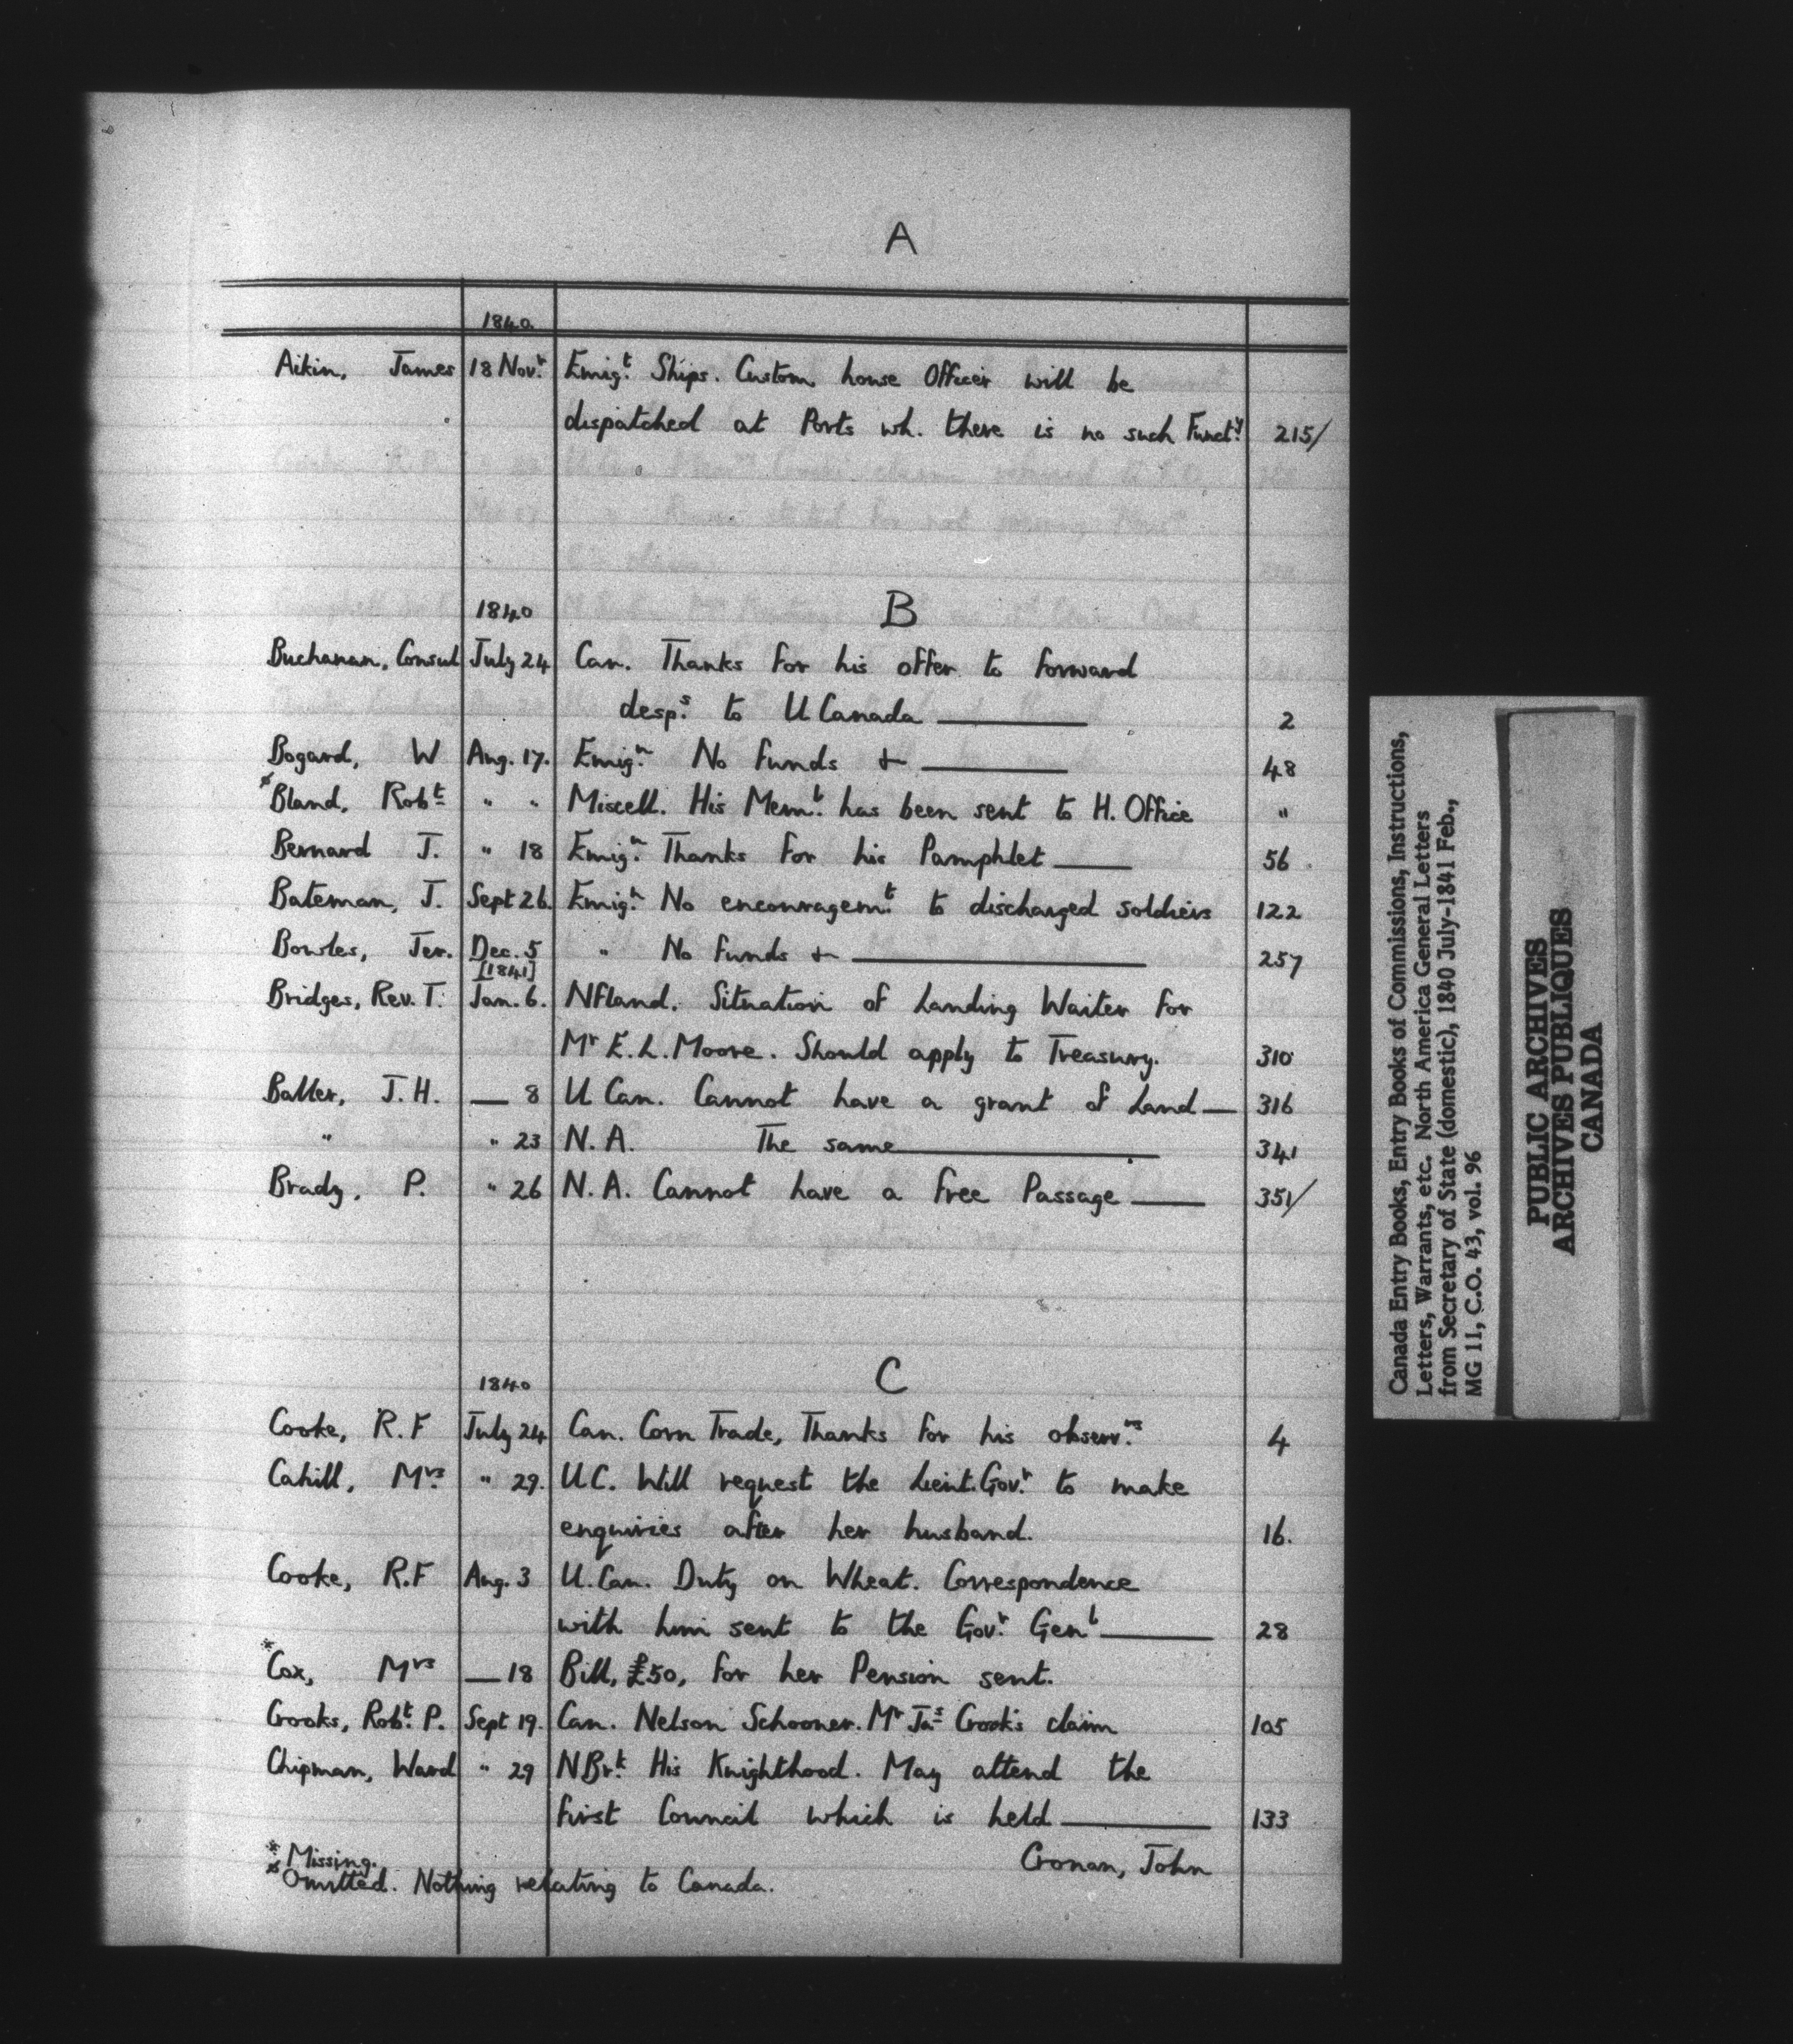 A
1840
Aikin, James 18 Novr. Emigt. Ships. Custom house Officer will be
dispatched at Ports wh. there is no such Functy. 215/
1840 B
Buchanan, Consul July 24 Can. Thanks for his offer to forward
desps. to U Canada — 2
Bogard, W Aug. 17. Emign. No Funds &— — 48
ø Bland, Robt " " Miscell. His Meml. has been sent to H. Office "
Bernard J. " 18 Emign. Thanks for his Pamphlet — 56
Bateman, J. Sept 26. Emign. No encouragemt. to discharged soldiers 122
Bowles, Jer. Dec. 5 " No Funds &— — 257
[1841]
Bridges, Rev. T. Jan. 6. NFland. Situation of Landing Waiter for
Mr E. L. Moore. Should apply to Treasury. 310
Baller, J. H. — 8 U Can. Cannot have a grant of Land — 316
" " 23 N. A. The same — 341
Brady, P. " 26 N. A. Cannot have a free Passage — 351/
1840 C
Cooke, R. F July 24 Can. Corn Trade, Thanks for his observns. 4
Cahill, Mrs. " 29. U.C. Will request the Lieut. Govr. to make
enquiries after her husband. 16.
Cooke, R.F Aug. 3 U. Can. Duty on Wheat. Correspondence
with him sent to the Govr. Genl — 28
* Cox, Mrs — 18 Bill, £50, for her Pension sent.
Crooks, Robt. P. Sept 19. Can. Nelson Schooner. Mr Jas Crook's claim 105
Chipman, Ward " 29 NBrk. His Knighthood. May attend the
first Council which is held — 133
Cronan, John
* Missing.
ø Omitted. Nothing relating to Canada.
Canada Entry Books, Entry Books of Commissions, Instructions,
Letters, Warrants, etc. North America General Letters
from Secretary of State (domestic), 1840 July-1841 Feb.,
MG 11, C.O. 43, vol. 96
PUBLIC ARCHIVES
ARCHIVES PUBLIQUES
CANADA